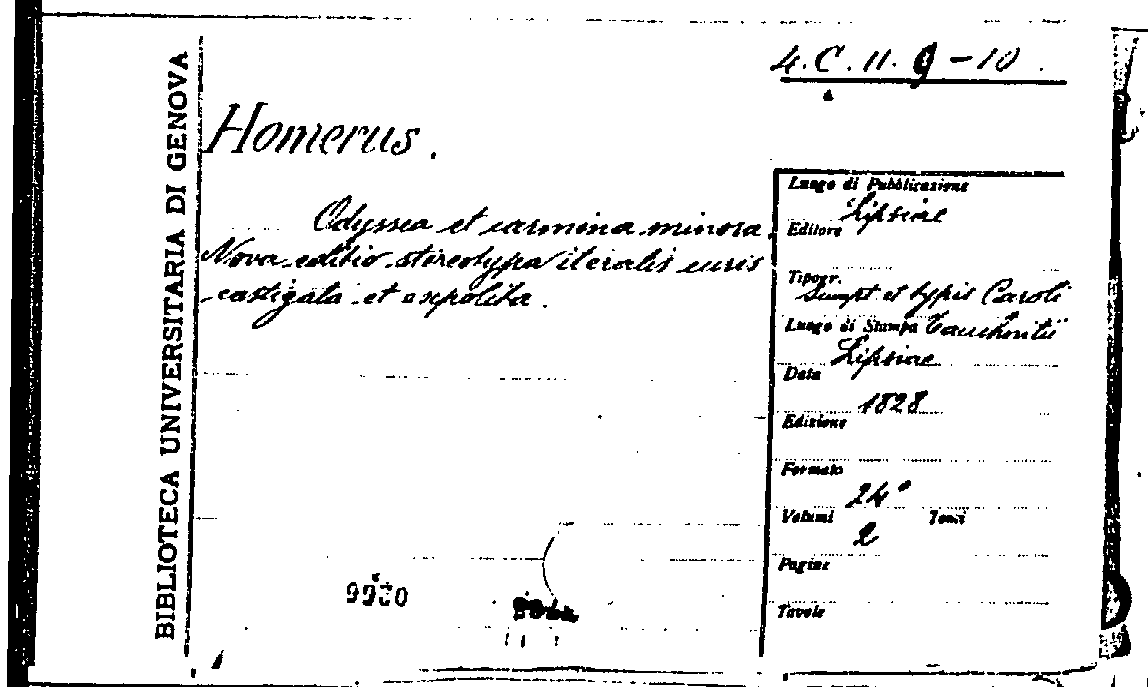 4. C. 11. 9-10.
BIBLIOTECA UNIVERSITARIA DI GENOVA
Homerus.
Odyssea et carmina minora.
Nova editio stereotypa iteratis curis
castigata et expolita.
Luogo di Pubblicazione
Lipsiae
Editore
Tipogr.
Sumpt et typis Caroli
Luogo di Stampa Tauchnitii
Lipsiae
Data
1828
Edizione
Formato
24°
Volumi Tomi
2
Pagine
Tavole